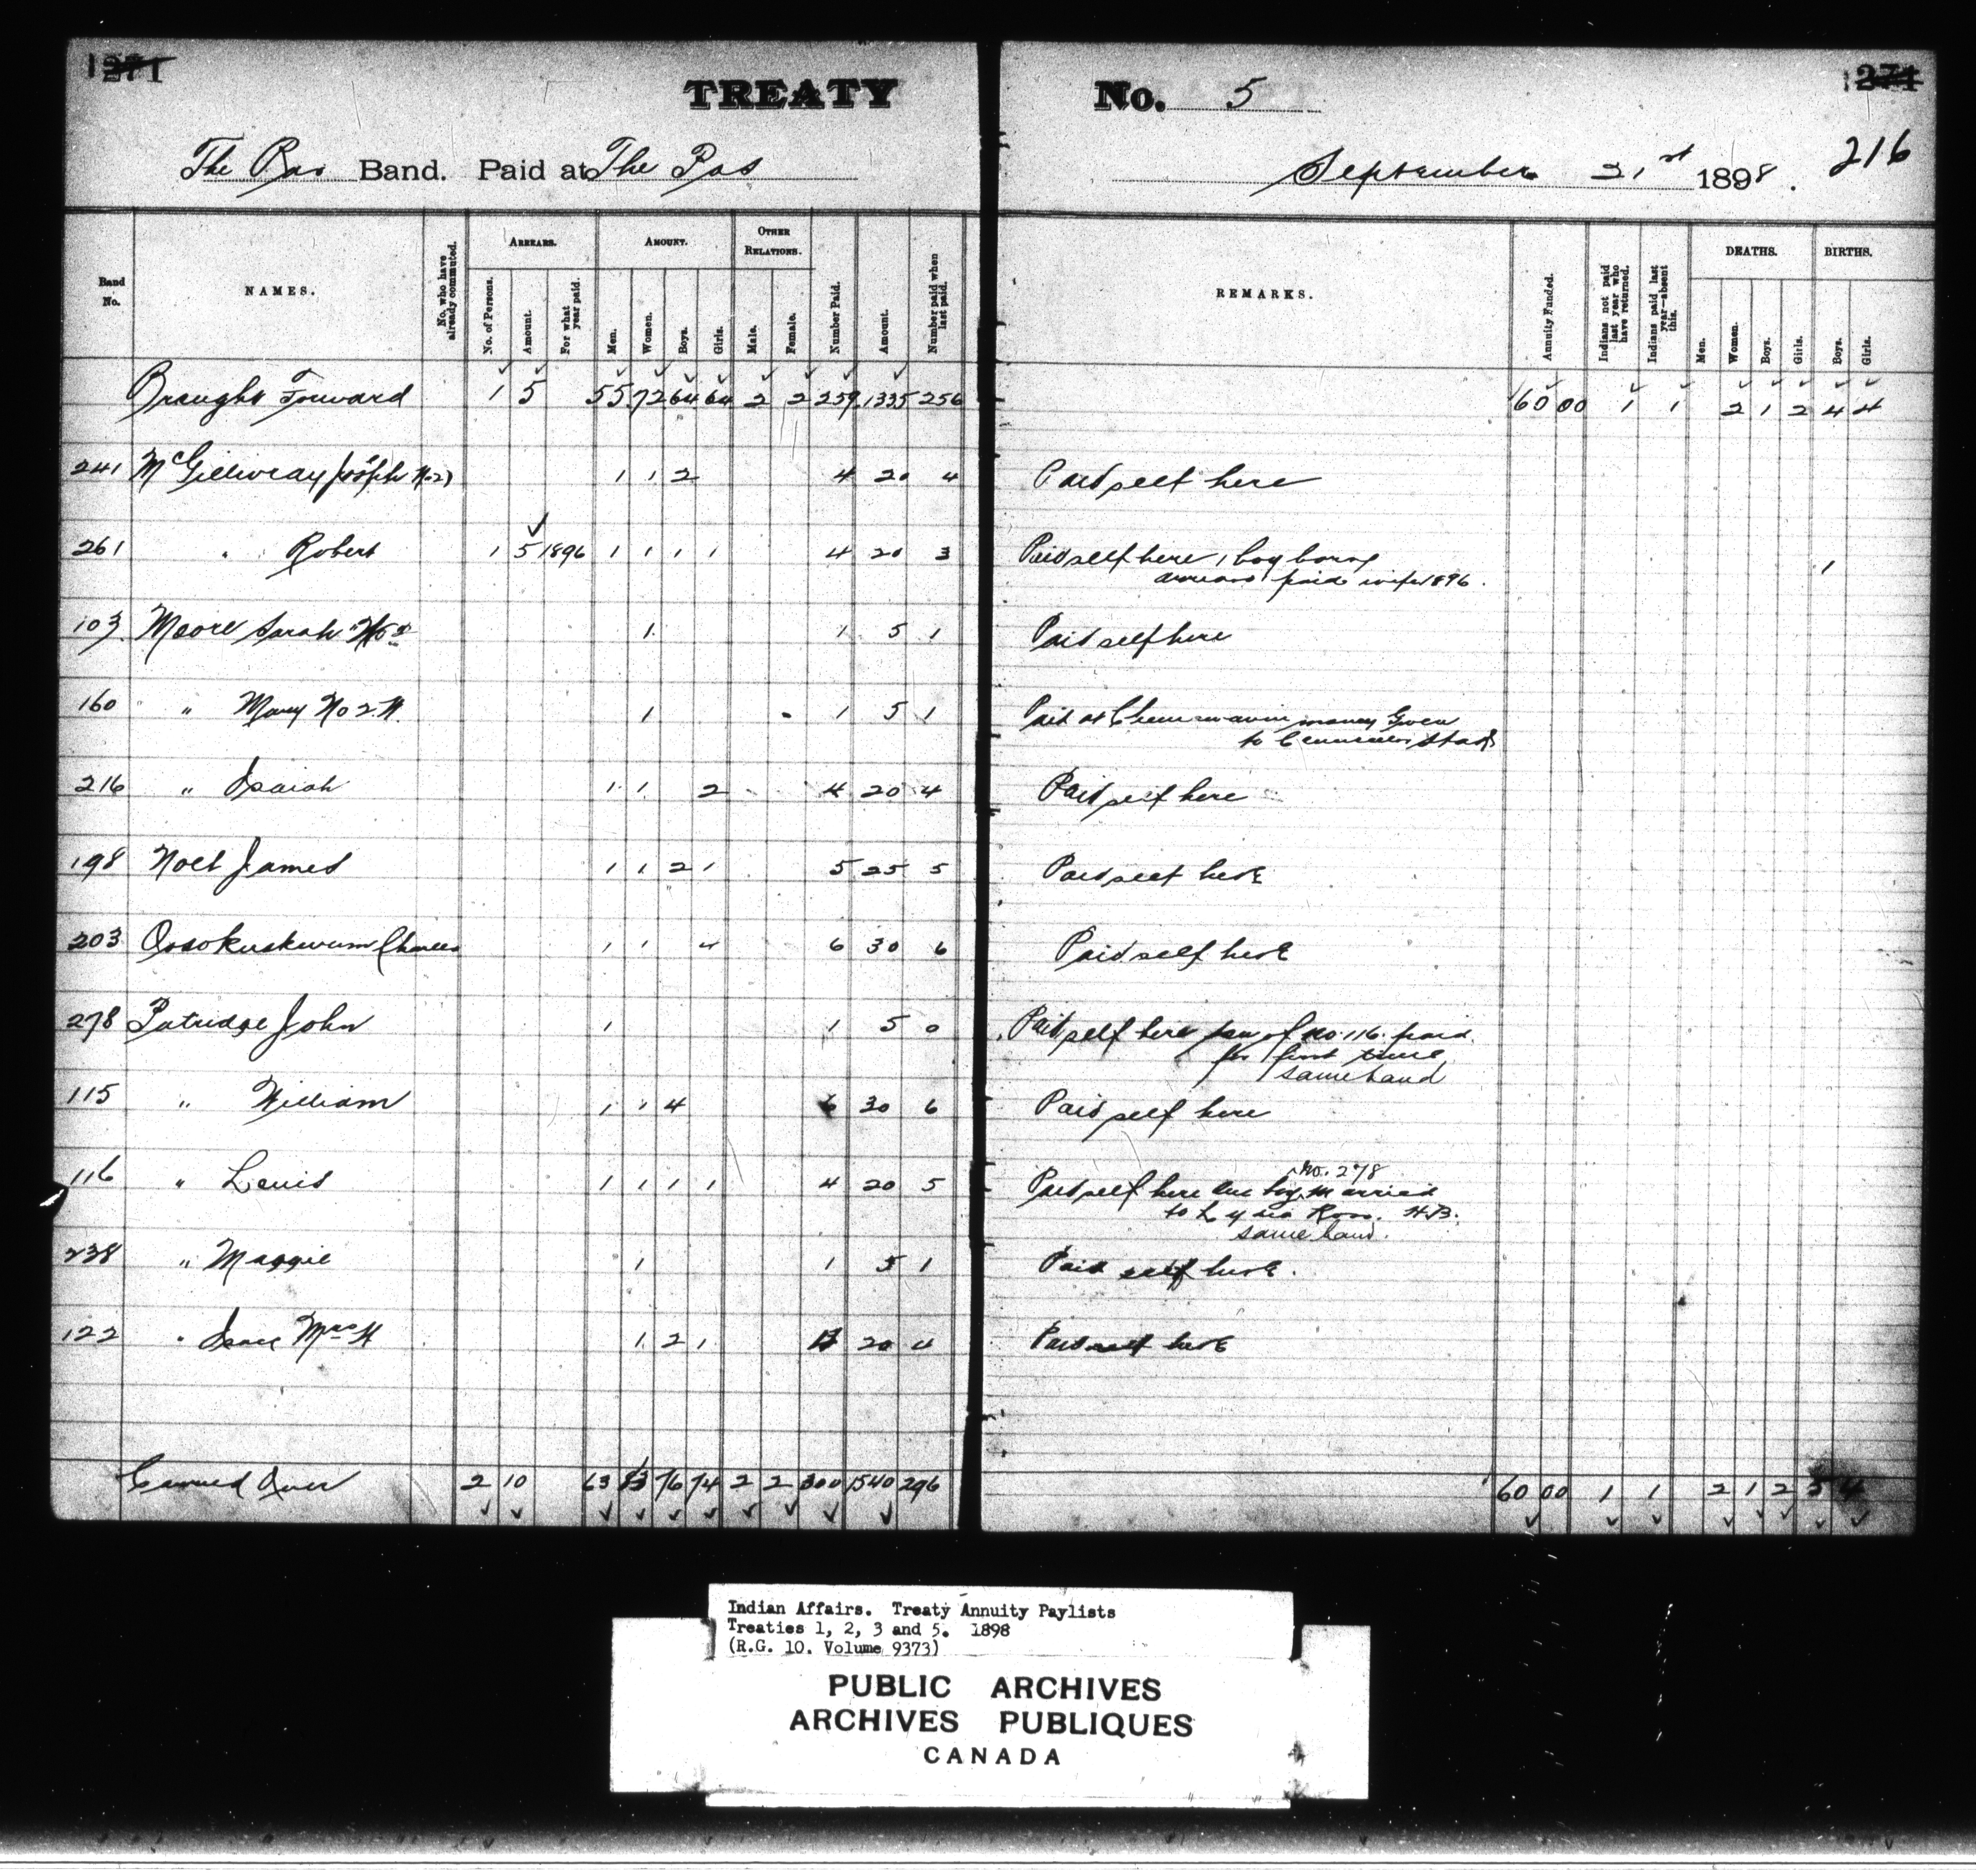 1271 1271
TREATY No. 5
The Pas Band. Paid at The Pas September 21st 1898. 216
Band No. NAMES. No. who have already commuted. ARREARS. No. of Persons. Amount. For what year paid. AMOUNT. Men. Women. Boys. Girls. OTHER RELATIONS. Male. Female. Number Paid. Amount. Number paid when last paid. REMARKS. Annuity Funded. Indians not paid last year who have returned. Indians paid last year—absent this. DEATHS. Men. Women. Boys. Girls. BIRTHS. Boys. Girls.
Brought Forward 1 5 55 72 64 64 2 2 259 1335 256 60 00 1 1 2 1 2 4 4
241 McGillivray Joseph No 2) 1 1 2 4 20 4 Paid self here
261 " Robert 1 5 1896 1 1 1 1 4 20 3 Paid self here 1 boy born 1
arrears paid wife 1896.
103 Moore Sarah No 2 1 1 5 1 Paid self here
160 " Mary No 2 W. 1 1 5 1 Paid at Chemawawin money Given
to Councillor
216 " Isaiah 1 1 2 4 20 4 Paid self here
198 Noel James 1 1 2 1 5 25 5 Paid self here
203 Ososkuskwum Charles 1 1 4 6 30 6 Paid self here
278 Patridge John 1 1 5 0 Paid self here son of no. 116. paid
for first time
same band
115 " William 1 1 4 6 30 6 Paid self here
No. 278
116 " Louis 1 1 1 1 4 20 5 Paid self here One boy married
to Lydia Ross. H.B.
same band.
238 " Maggie 1 1 5 1 Paid self here.
122 " Isaac Mrs W 1 2 1 4 20 4 Paid self here
Carried Over 2 10 63 83 76 74 2 2 300 1540 296 60 00 1 1 2 1 2 5 4
Indian Affairs. Treaty Annuity Paylists
Treaties 1, 2, 3 and 5. 1898
(R.G. 10. Volume 9373)
PUBLIC ARCHIVES
ARCHIVES PUBLIQUES
CANADA